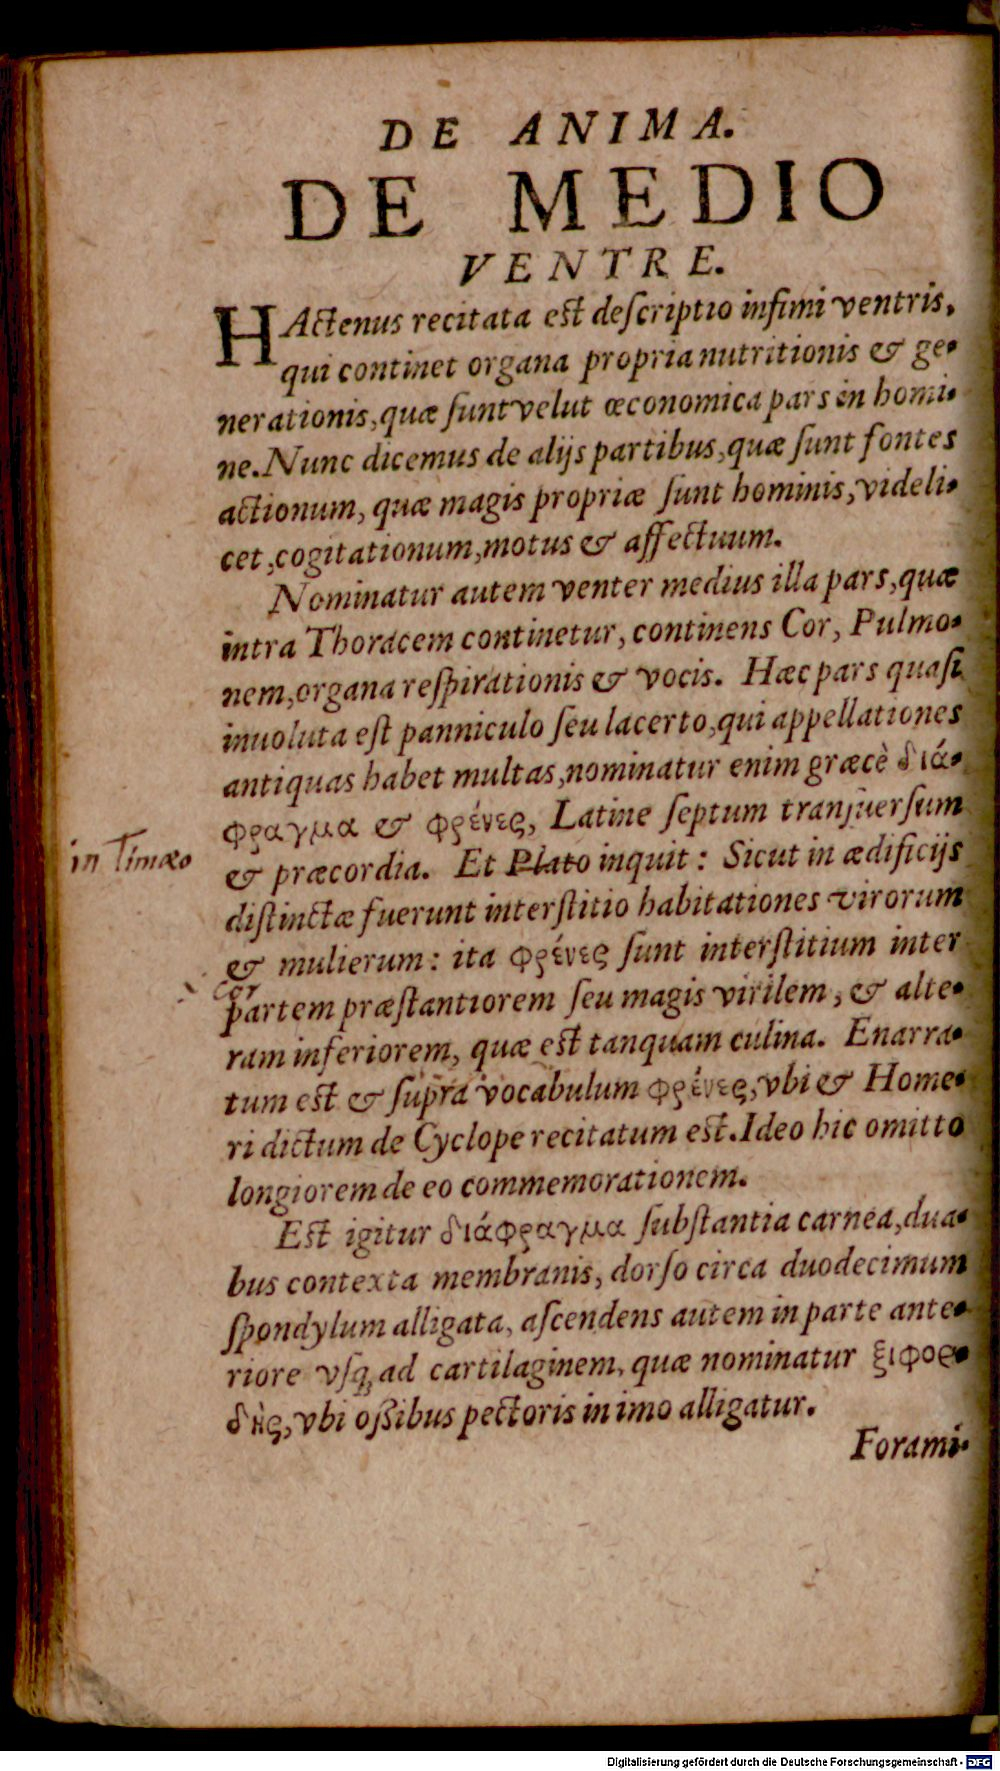 DE ANIMA.
DE MEDIO
VENTRE.
HActenus recitata est deſcriptio infimi ventris,
qui continet organa propria nutritionis & ge-
nerationis, quæ ſunt velut œconomica pars in homi-
ne. Nunc dicemus de alijs partibus, quæ ſunt fontes
actionum, quæ magis propriæ ſunt hominis, videli-
cet, cogitationum, motus & affectuum.
Nominatur autem venter medius illa pars, quæ
intra Thoracem continetur, continens Cor, Pulmo-
nem, organa reſpirationis & vocis. Hæc pars quaſi
inuoluta eſt panniculo ſeu lacerto, qui appellationes
antiquas habet multas, nominatur enim græcè διά-
φραγμα & φρένες, Latine ſeptum tranſuerſum
in Timæo
& præcordia. Et Plato inquit: Sicut in ædificijs
diſtinctæ fuerunt interſtitio habitationes virorum
& mulierum: ita φρένες ſunt interſtitium inter
cor
partem præſtantiorem ſeu magis virilem, & alte-
ram inferiorem, quæ est tanquam culina. Enarra-
tum est & ſupra vocabulum φρένες, vbi & Home-
ri dictum de Cyclope recitatum est. Ideo hic omitto
longiorem de eo commemorationem.
Est igitur διάφραγμα ſubſtantia carnea, dua-
bus contexta membranis, dorſo circa duodecimum
ſpondylum alligata, aſcendens autem in parte ante-
riore vſq; ad cartilaginem, quæ nominatur ξιφοϱ-
δὴς, vbi oſſibus pectoris in imo alligatur.
Forami-
Digitalisierung gefördert durch die Deutsche Forschungsgemeinschaft - DFG